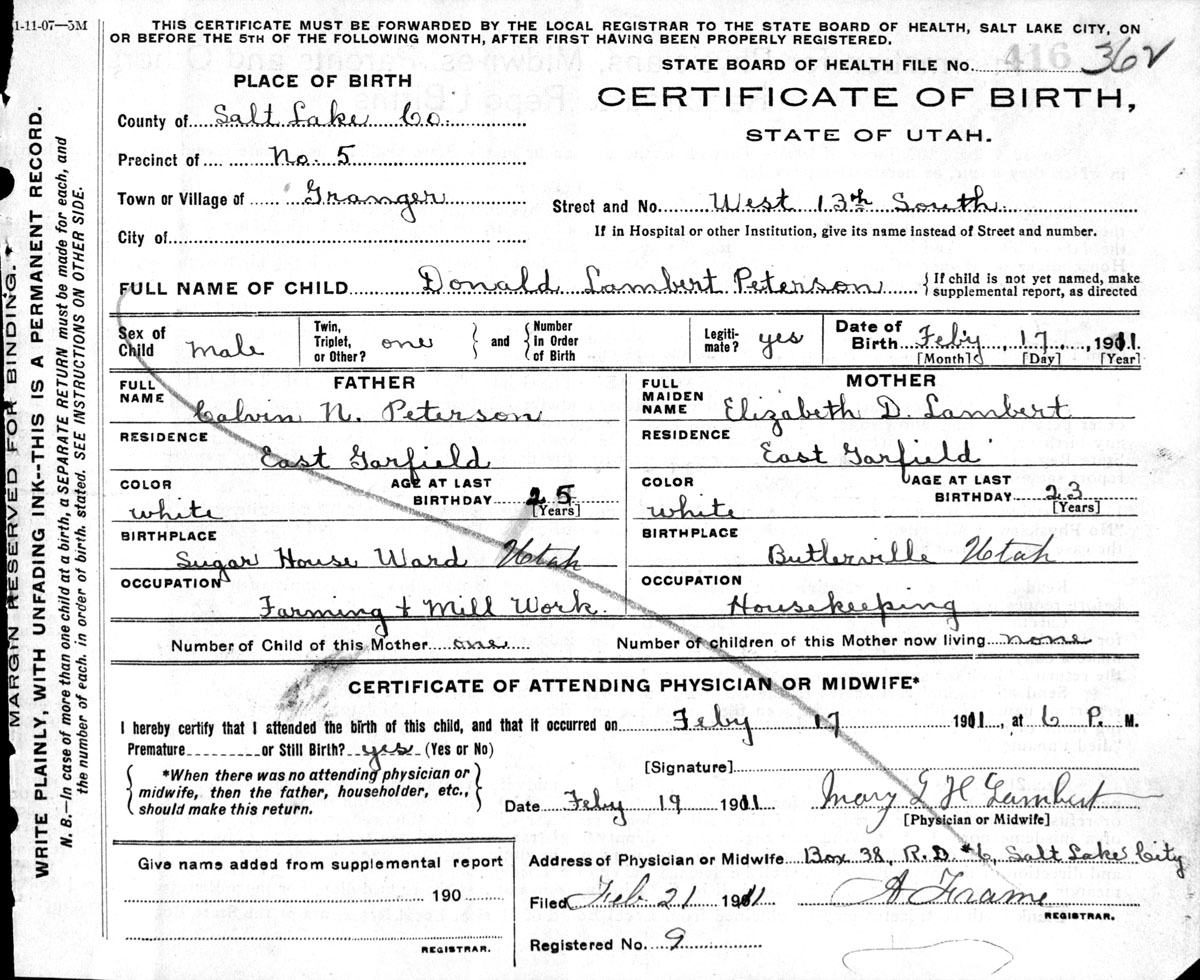 1-11-07—5M
THIS CERTIFICATE MUST BE FORWARDED BY THE LOCAL REGISTRAR TO THE STATE BOARD OF HEALTH, SALT LAKE CITY, ON
OR BEFORE THE 5TH OF THE FOLLOWING MONTH, AFTER FIRST HAVING BEEN PROPERLY REGISTERED.
STATE BOARD OF HEALTH FILE No. 416 362
PLACE OF BIRTH
CERTIFICATE OF BIRTH,
STATE OF UTAH.
County of Salt Lake Co.
Precinct of No. 5
Town or Village of Granger
Street and No. West 13th South
City of
If in Hospital or other Institution, give its name instead of Street and number.
FULL NAME OF CHILD Donald Lambert Peterson { If child is not yet named, make
supplemental report, as directed
Sex of Child male Twin, Triplet, or Other? one } and { Number in Order of Birth Legiti-mate? yes Date of Birth Feby, 17, 1911
[Month] [Day] [Year]
FATHER MOTHER
FULL NAME Calvin N. Peterson FULL MAIDEN NAME Elizabeth D. Lambert
RESIDENCE East Garfield RESIDENCE East Garfield
COLOR white AGE AT LAST BIRTHDAY 25 [Years] COLOR white AGE AT LAST BIRTHDAY 23 [Years]
BIRTHPLACE Sugar House Ward Utah BIRTHPLACE Butlerville Utah
OCCUPATION Farming & Mill Work. OCCUPATION Housekeeping
Number of Child of this Mother one Number of children of this Mother now living none
CERTIFICATE OF ATTENDING PHYSICIAN OR MIDWIFE*
I hereby certify that I attended the birth of this child, and that it occurred on Feby 17 1911, at 6 P. M.
Premature or Still Birth? yes (Yes or No)
{ *When there was no attending physician or
midwife, then the father, householder, etc.,
should make this return. }
[Signature]
Date Feby 19 1911 Mary G H Lambert
[Physician or Midwife]
Give name added from supplemental report
190
REGISTRAR.
Address of Physician or Midwife Box 38, R.D. #6, Salt Lake City
Filed Feb 21 1911
REGISTRAR.
Registered No. 9
MARGIN RESERVED FOR BINDING.
WRITE PLAINLY, WITH UNFADING INK--THIS IS A PERMANENT RECORD.
N. B.—In case of more than one child at a birth, a SEPARATE RETURN must be made for each, and
the number of each, in order of birth, stated. SEE INSTRUCTIONS ON OTHER SIDE.